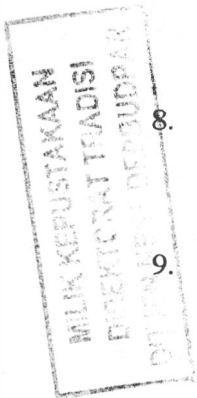 MILIK KEPUSTAKAAN
DIREKTORAT TRADISI
DEPBUDPAR
8.
9.